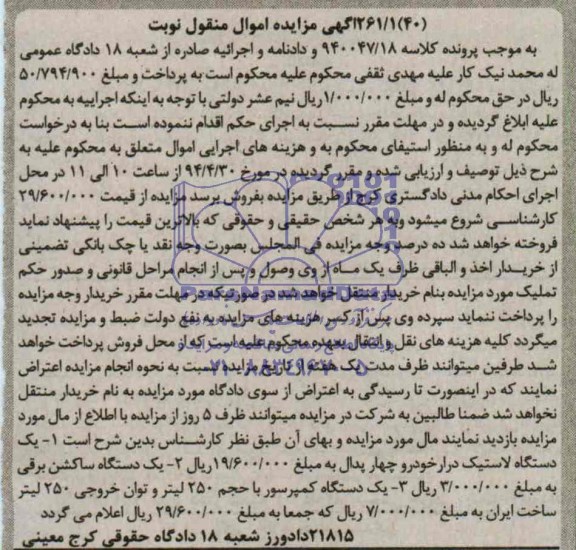 (۴۰)۲۶۱/۱آگهی مزایده اموال منقول نوبت
به موجب پرونده کلاسه ۹۴۰۰۴۷/۱۸ و دادنامه و اجرائیه صادره از شعبه ۱۸ دادگاه عمومی
له محمد نیک کار علیه مهدی ثقفی محکوم علیه محکوم است به پرداخت و مبلغ ۵۰/۷۹۴/۹۰۰
ریال در حق محکوم له و مبلغ ۱/۰۰۰/۰۰۰ریال نیم عشر دولتی با توجه به اینکه اجراییه به محکوم
علیه ابلاغ گردیده و در مهلت مقرر نسبت به اجرای حکم اقدام ننموده است بنا به درخواست
محکوم له و به منظور استیفای محکوم به و هزینه های اجرایی اموال متعلق به محکوم علیه به
شرح ذیل توصیف و ارزیابی شده و مقرر گردیده در مورخ ۹۴/۴/۳۰ از ساعت ۱۰ الی ۱۱ در محل
اجرای احکام مدنی دادگستری کرج از طریق مزایده بفروش برسد مزایده از قیمت ۲۹/۶۰۰/۰۰۰
کارشناسی شروع میشود و به هر شخص حقیقی و حقوقی که بالاترین قیمت را پیشنهاد نماید
فروخته خواهد شد ده درصد وجه مزایده فی المجلس بصورت وجه نقد یا چک بانکی تضمینی
از خریدار اخذ و الباقی ظرف یک ماه از وی وصول و پس از انجام مراحل قانونی و صدور حکم
تملیک مورد مزایده بنام خریدار منتقل خواهد شد در صورتیکه در مهلت مقرر خریدار وجه مزایده
را پرداخت ننماید سپرده وی پس از کسر هزینه های مزایده به نفع دولت ضبط و مزایده تجدید
میگردد کلیه هزینه های نقل و انتقال بعهده محکوم علیه است که از محل فروش پرداخت خواهد
شد طرفین میتوانند ظرف مدت یک هفته از تاریخ مزایده نسبت به نحوه انجام مزایده اعتراض
نمایند که در اینصورت تا رسیدگی به اعتراض از سوی دادگاه مورد مزایده به نام خریدار منتقل
نخواهد شد ضمنا طالبین به شرکت در مزایده میتوانند ظرف ۵ روز از مزایده با اطلاع از مال مورد
مزایده بازدید نمایند مال مورد مزایده و بهای آن طبق نظر کارشناس بدین شرح است ۱- یک
دستگاه لاستیک درارخودرو چهار پدال به مبلغ ۱۹/۶۰۰/۰۰۰ریال ۲- یک دستگاه ساکشن برقی
به مبلغ ۳/۰۰۰/۰۰۰ ریال ۳- یک دستگاه کمپرسور با حجم ۲۵۰ لیتر و توان خروجی ۲۵۰ لیتر
ساخت ایران به مبلغ ۷/۰۰۰/۰۰۰ ریال که جمعا به مبلغ ۲۹/۶۰۰/۰۰۰ ریال اعلام می گردد
۲۱۸۱۵دادورز شعبه ۱۸ دادگاه حقوقی کرج معینی